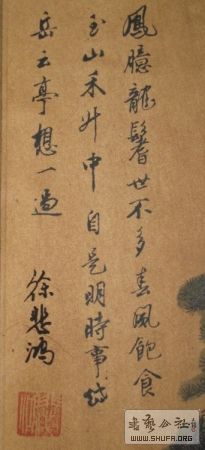 鳳臆龍鬐世不多春風飽食
玉山禾艸中自是明時事
岳云亭想一過
徐悲鴻
書藝公社
WWW.SHUFA.ORG